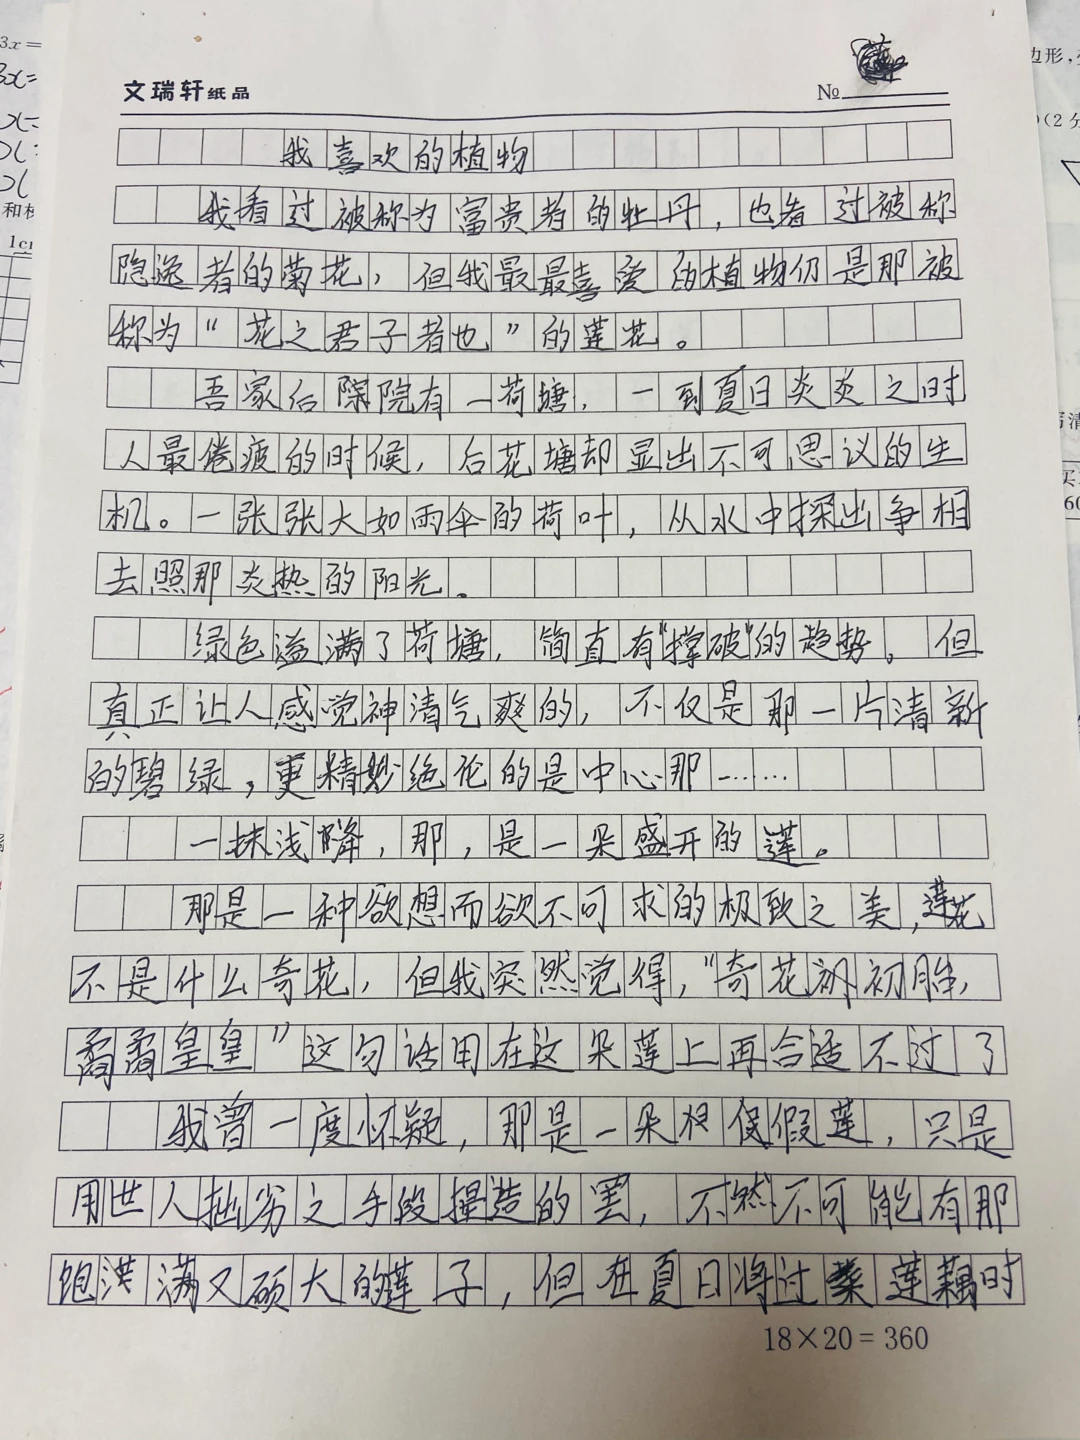 文瑞轩纸品
№
我喜欢的植物
我看过被称为富贵者的牡丹，也看过被称
隐逸者的菊花，但我最最喜爱的植物仍是那被
称为“花之君子者也”的莲花。
吾家后院有一荷塘，一到夏日炎炎之时
人最倦疲的时候，后花塘却显出不可思议的生
机。一张张大如雨伞的荷叶，从水中探出争相
去照那炎热的阳光。
绿色溢满了荷塘，简直有“撑破”的趋势。但
真正让人感觉神清气爽的，不仅是那一片清新
的碧绿，更精妙绝伦的是中心那一……
一抹浅降，那，是一朵盛开的莲。
那是一种欲想而欲不可求的极致之美，莲花
不是什么奇花，但我突然觉得，“奇花初胎，
矞矞皇皇”这句话用在这朵莲上再合适不过了
我曾一度怀疑，那是一朵假莲，只是
用世人拙劣之手段捏造的罢，不然不可能有那
饱满又硕大的莲子，但在夏日将过 莲藕时
18×20=360
3x=
边形，
(2分
和
1cm